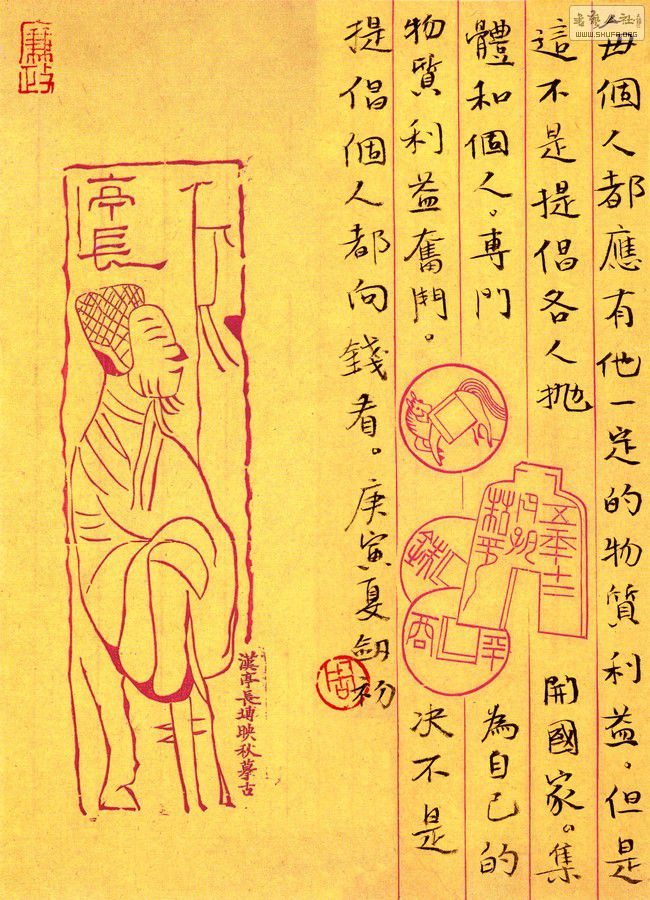 每個人都應有他一定的物質利益。但是
這不是提倡各人抛開國家。集
體和個人。專門為自己的
物質利益奮鬥。决不是
提倡個人都向錢看。庚寅夏劒初
亭長
漢亭長塼映秋摹古
廉政
WWW.SHUFA.ORG